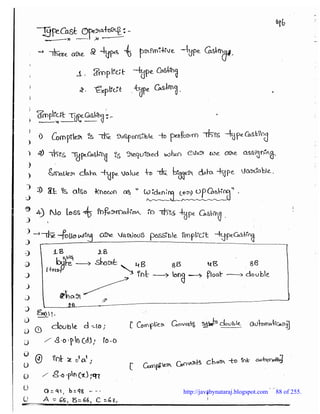 96
TypeCast Operators :-
→ There are 2 types of primitive type Castings.
1. Implicit type Casting
2. Explicit type Casting.
Implicit TypeCasting :-
1) Compiler is the responsible to perform this type Casting
2) This TypeCasting is required when ever we are assigning
Smaller data type value to the bigger data type variable.
3) It is also known as "Widening (or) UpCasting".
4) No loss of information in this type Casting.
→ The following are various possible implicit typeCasting
1B 2B
byte → short 4B 8B 4B 8B
int → long → float → double
char
2B
Ex:-
① double d = 10; [Compiler Converts int to double automatically]
S.o.pln(d); 10.0
② int x = 'a'; [Compiler Converts char to int automatically]
S.o.pln(x); 97
a = 97, b = 98 - - -
A = 65, B = 66, C = 67.
http://javabynataraj.blogspot.com 88 of 255.